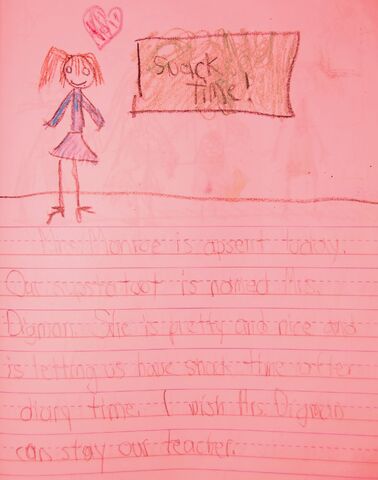 snack
time!
Mrs. Monroe is absent today.
Our substatoot is named Mrs.
Digman. She is pretty and nice and
is letting us have snack time after
diary time. I wish Mrs. Digman
can stay our teacher.